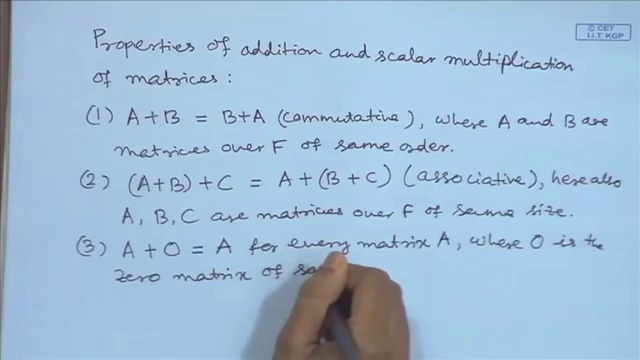 © CET
I.I.T. KGP
Properties of addition and scalar multiplication
of matrices :
(1) A+B = B+A (commutative), where A and B are
matrices over F of same order.
(2) (A+B) + C = A + (B + C) (associative), here also
A, B, C are matrices over F of same size.
(3) A + O = A for every matrix A, where O is the
zero matrix of sa